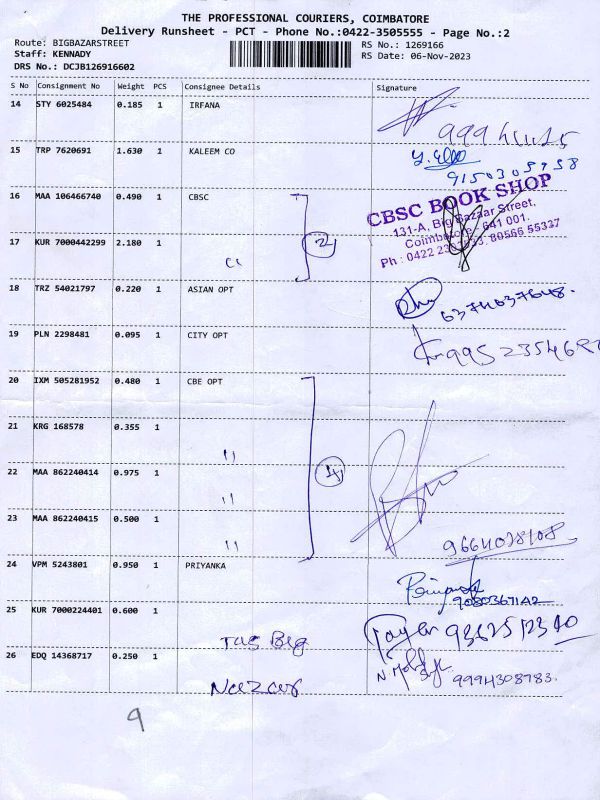 THE PROFESSIONAL COURIERS, COIMBATORE
Delivery Runsheet - PCT - Phone No.:0422-3505555 - Page No.:2
Route: BIGBAZARSTREET RS No.: 1269166
Staff: KENNADY RS Date: 06-Nov-2023
DRS No.: DCJB126916602
S No Consignment No Weight PCS Consignee Details Signature
14 STY 6025484 0.185 1 IRFANA
15 TRP 7620691 1.630 1 KALEEM CO
9150305758
16 MAA 106466740 0.490 1 CBSC
CBSC BOOK SHOP
131-A, Big Bazaar Street,
Coimbatore - 641 001.
Ph : 0422 80566 55337
2
17 KUR 7000442299 2.180 1 "
18 TRZ 54021797 0.220 1 ASIAN OPT
6374637648.
19 PLN 2298481 0.095 1 CITY OPT
20 IXM 505281952 0.480 1 CBE OPT
21 KRG 168578 0.355 1 "
22 MAA 862240414 0.975 1 "
4
23 MAA 862240415 0.500 1 "
24 VPM 5243801 0.950 1 PRIYANKA
25 KUR 7000224401 0.600 1 Tas Beg
26 EDQ 14368717 0.250 1 Nazar
9994308783.
9